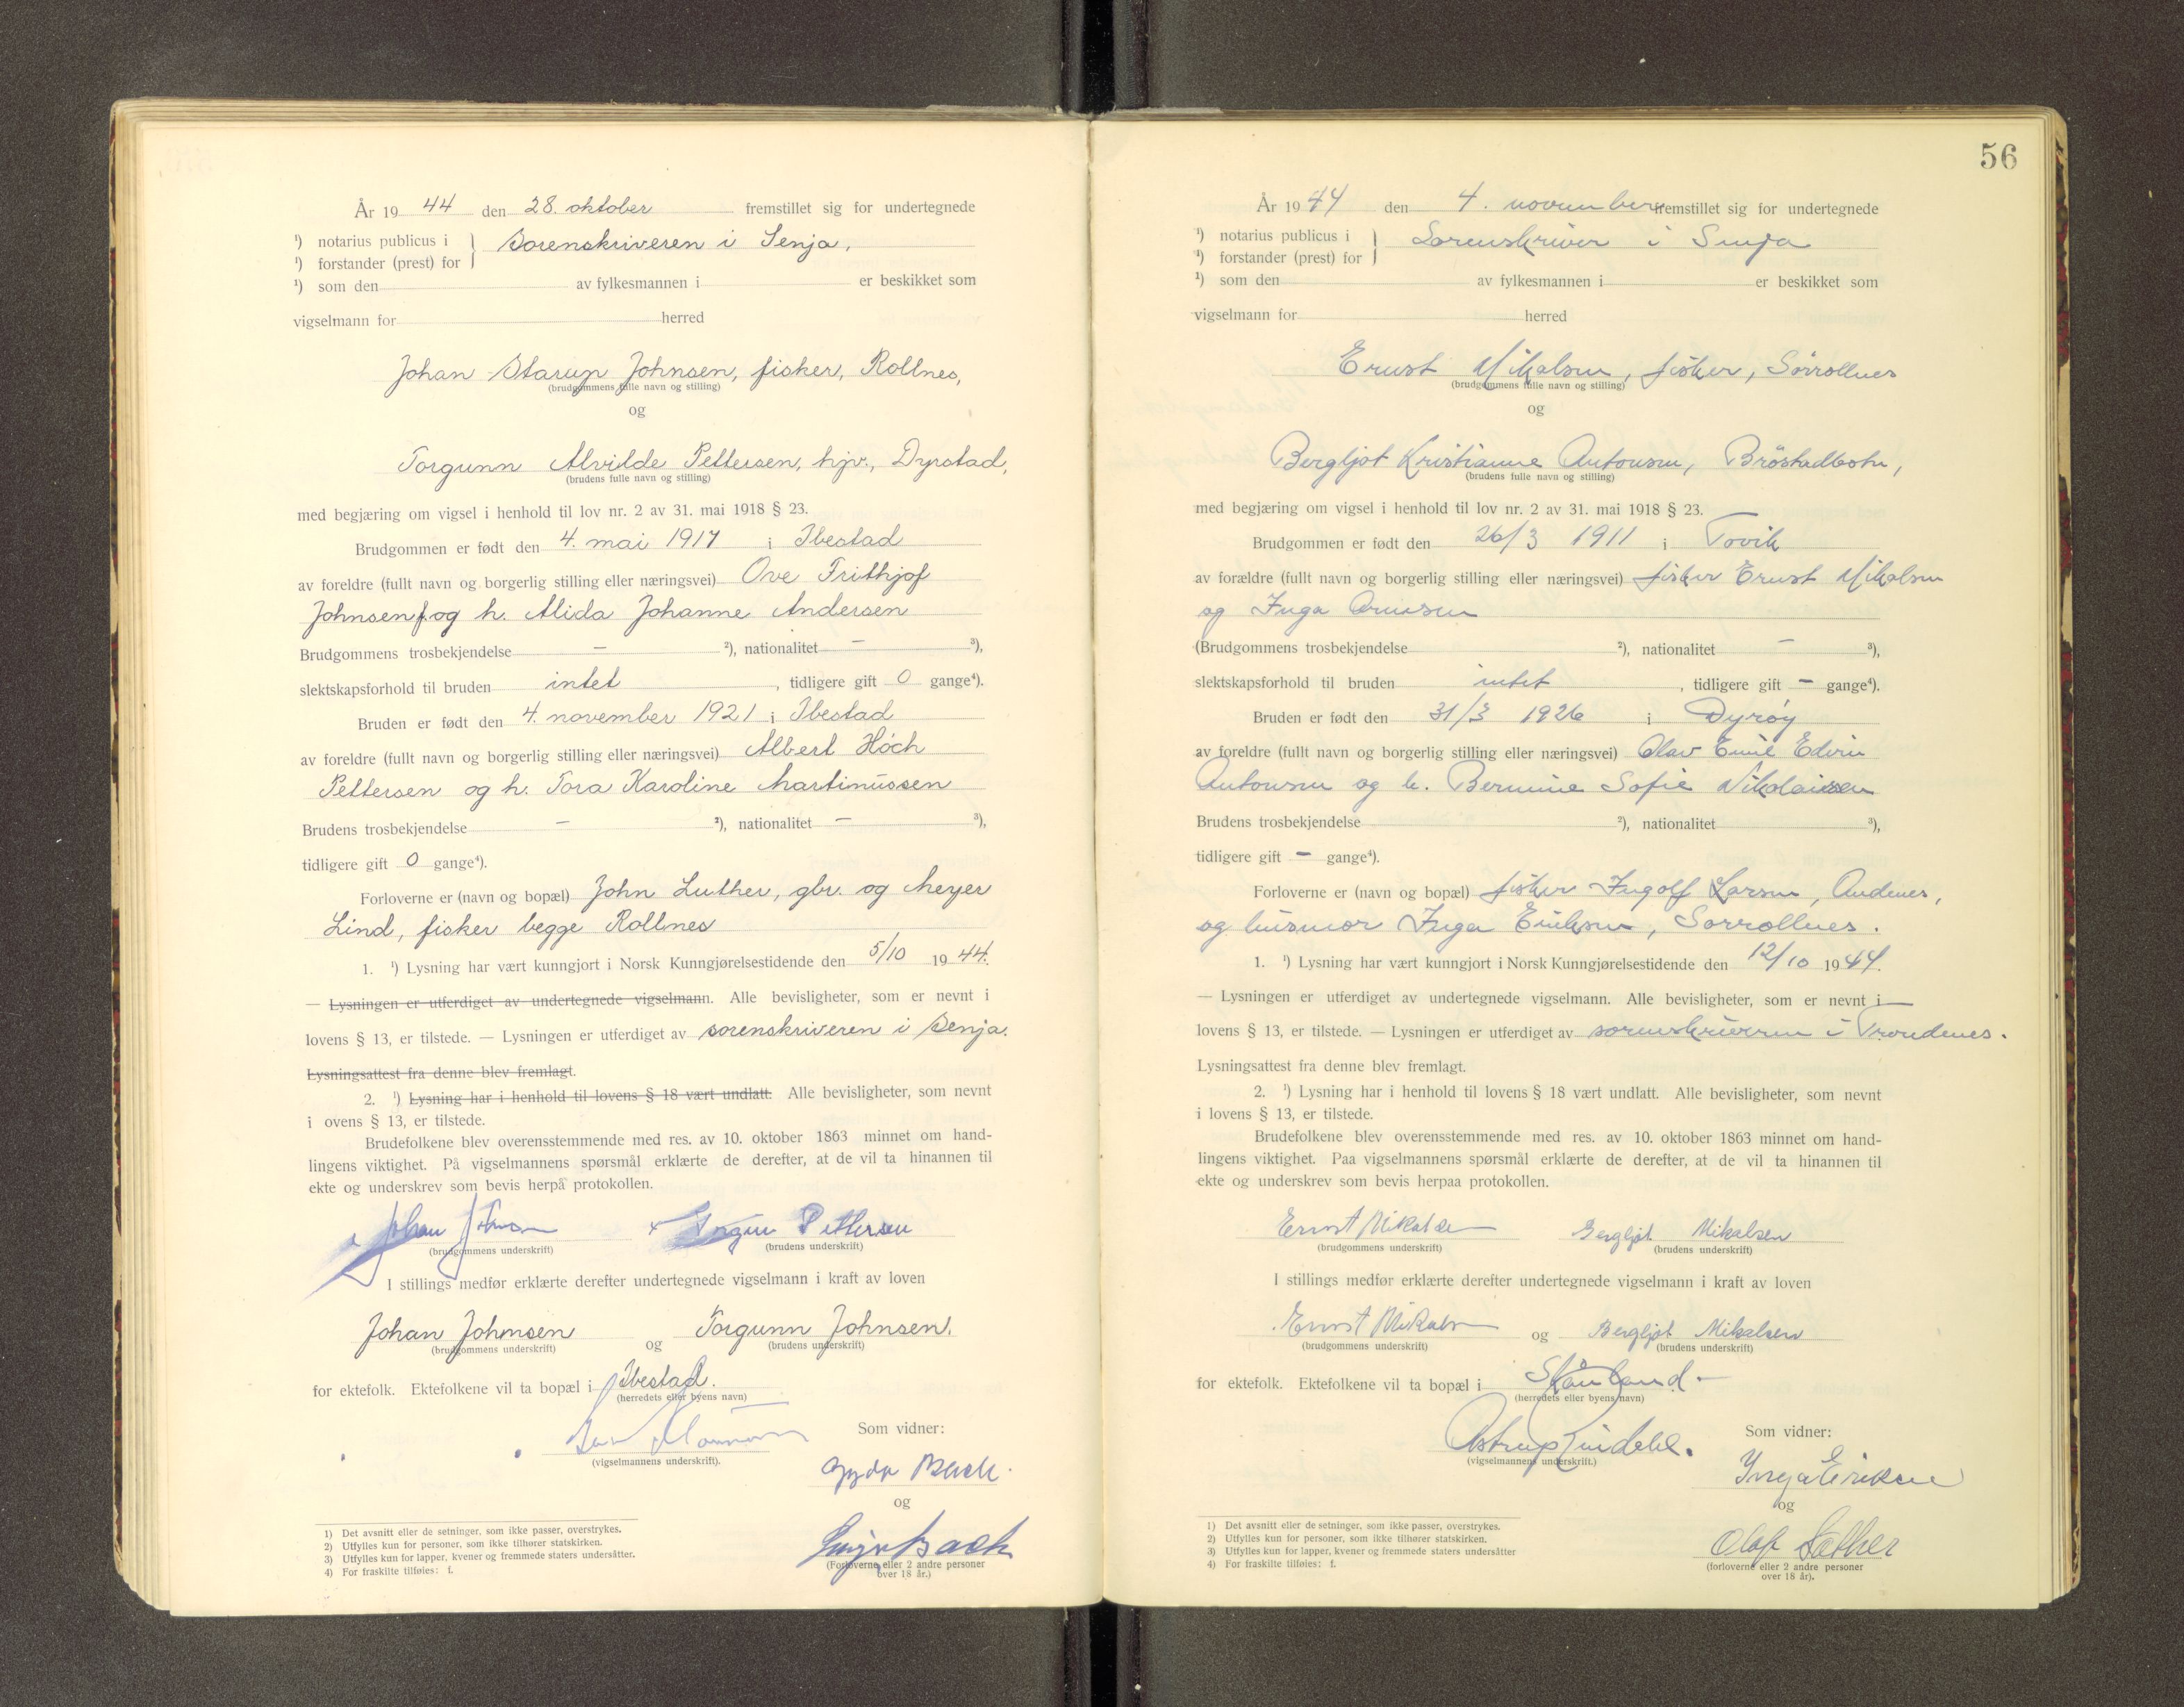 År 19 44 den 28. oktober fremstillet sig for undertegnede
¹) notarius publicus i } Sorenskriveren i Senja,
¹) forstander (prest) for
¹) som den av fylkesmannen i er beskikket som
vigselmann for herred
Johan Starup Johnsen, fisker, Rollnes,
(brudgommens fulle navn og stilling)
og
Torgunn Alvilde Pettersen, hjv., Dyrstad,
(brudens fulle navn og stilling)
med begjæring om vigsel i henhold til lov nr. 2 av 31. mai 1918 § 23.
Brudgommen er født den 4. mai 1917 i Ibestad
av foreldre (fullt navn og borgerlig stilling eller næringsvei) Ove Frithjof
Johnsen og h. Alida Johanne Andersen
Brudgommens trosbekjendelse – ²), nationalitet – ³),
slektskapsforhold til bruden intet, tidligere gift 0 gange⁴).
Bruden er født den 4. november 1921 i Ibestad
av foreldre (fullt navn og borgerlig stilling eller næringsvei) Albert Höch
Pettersen og h. Tora Karoline Martinussen
Brudens trosbekjendelse – ²), nationalitet – ³),
tidligere gift 0 gange⁴).
Forloverne er (navn og bopæl) John Luther, gbr. og Meyer
Lind, fisker begge Rollnes
1. ¹) Lysning har vært kunngjort i Norsk Kunngjørelsestidende den 5/10 19 44.
— Lysningen er utferdiget av undertegnede vigselmann. Alle bevisligheter, som er nevnt i
lovens § 13, er tilstede. — Lysningen er utferdiget av sorenskriveren i Senja.
Lysningsattest fra denne blev fremlagt.
2. ¹) Lysning har i henhold til lovens § 18 vært undlatt. Alle bevisligheter, som nevnt
i ovens § 13, er tilstede.
Brudefolkene blev overensstemmende med res. av 10. oktober 1863 minnet om hand-
lingens viktighet. På vigselmannens spørsmål erklærte de derefter, at de vil ta hinannen til
ekte og underskrev som bevis herpå protokollen.
x Johan Johnsen x Pettersen
(brudgommens underskrift) (brudens underskrift)
I stillings medfør erklærte derefter undertegnede vigselmann i kraft av loven
Johan Johnsen og Torgunn Johnsen.
(brudgommens underskrift) (brudens underskrift)
for ektefolk. Ektefolkene vil ta bopæl i Ibestad.
(herredets eller byens navn)
Som vidner:
(vigselmannens underskrift).
Gyda Bach.
og
Bach
(Forloverne eller 2 andre personer
over 18 år.)
1) Det avsnitt eller de setninger, som ikke passer, overstrykes.
2) Utfylles kun for personer, som ikke tilhører statskirken.
3) Utfylles kun for lapper, kvener og fremmede staters undersåtter.
4) For fraskilte tilføies: f.
56
År 19 44 den 4. november fremstillet sig for undertegnede
¹) notarius publicus i } Sorenskriver i Senja
¹) forstander (prest) for
¹) som den av fylkesmannen i er beskikket som
vigselmann for herred
Ernst Mikalsen, fisker, Sørrollnes
(brudgommens fulle navn og stilling)
og
Bergljot Kristianne Antonsen, Brøstadbotn,
(brudens fulle navn og stilling)
med begjæring om vigsel i henhold til lov nr. 2 av 31. mai 1918 § 23.
Brudgommen er født den 26/3 1911 i Tovik
av forældre (fullt navn og borgerlig stilling eller næringsvei) fisker Ernst Mikalsen
og Inga Arnesen
(Brudgommens trosbekjendelse ²), nationalitet – ³),
slektskapsforhold til bruden intet, tidligere gift – gange⁴).
Bruden er født den 31/3 1926 i Dyrøy
av foreldre (fullt navn og borgerlig stilling eller næringsvei) Olav Emil Edvin
Antonsen og h. Bernine Sofie Nikolaisen
Brudens trosbekjendelse ²), nationalitet ³),
tidligere gift – gange⁴).
Forloverne er (navn og bopæl) fisker Ingolf Larsen, Andenes,
og husmor Inga Eriksen, Sørrollnes.
1. ¹) Lysning har vært kunngjort i Norsk Kunngjørelsestidende den 12/10 19 44.
— Lysningen er utferdiget av undertegnede vigselmann. Alle bevisligheter, som er nevnt i
lovens § 13, er tilstede. — Lysningen er utferdiget av sorenskriveren i Trondenes.
Lysningsattest fra denne blev fremlagt.
2. ¹) Lysning har i henhold til lovens § 18 vært undlatt. Alle bevisligheter, som nevnt
i lovens § 13, er tilstede.
Brudefolkene blev overensstemmende med res. av 10. oktober 1863 minnet om hand-
lingens viktighet. Paa vigselmannens spørsmål erklærte de derefter, at de vil ta hinannen til
ekte og underskrev som bevis herpaa protokollen.
Ernst Mikalsen Bergljot Mikalsen
(brudgommens underskrift) (brudens underskrift)
I stillings medfør erklærte derefter undertegnede vigselmann i kraft av loven
Ernst Mikalsen og Bergljot Mikalsen
(brudgommens underskrift) (brudens underskrift)
for ektefolk. Ektefolkene vil ta bopæl i Skånland.
(herredets eller byens navn)
Astrup Lindahl.
Som vidner:
(vigselmannens underskrift.)
Inga Eriksen
og
Olaf Sæther
(forloverne eller 2 andre personer
over 18 år).
1) Det avsnitt eller de setninger, som ikke passer, overstrykes.
2) Utfylles kun for personer, som ikke tilhører statskirken.
3) Utfylles kun for lapper, kvener og fremmede staters undersåtter
4) For fraskilte tilføies: f.